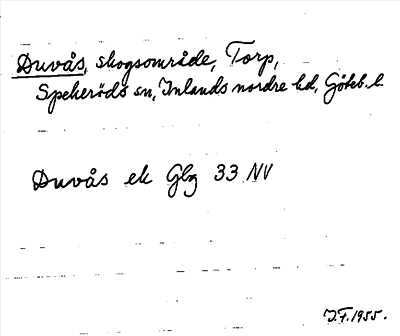 Duvås, skogsområde, Torp,
Spekeröds sn, Inlands nordre hd, Göteb. l.
Duvås ek Gbg 33 NV
J.F. 1955.